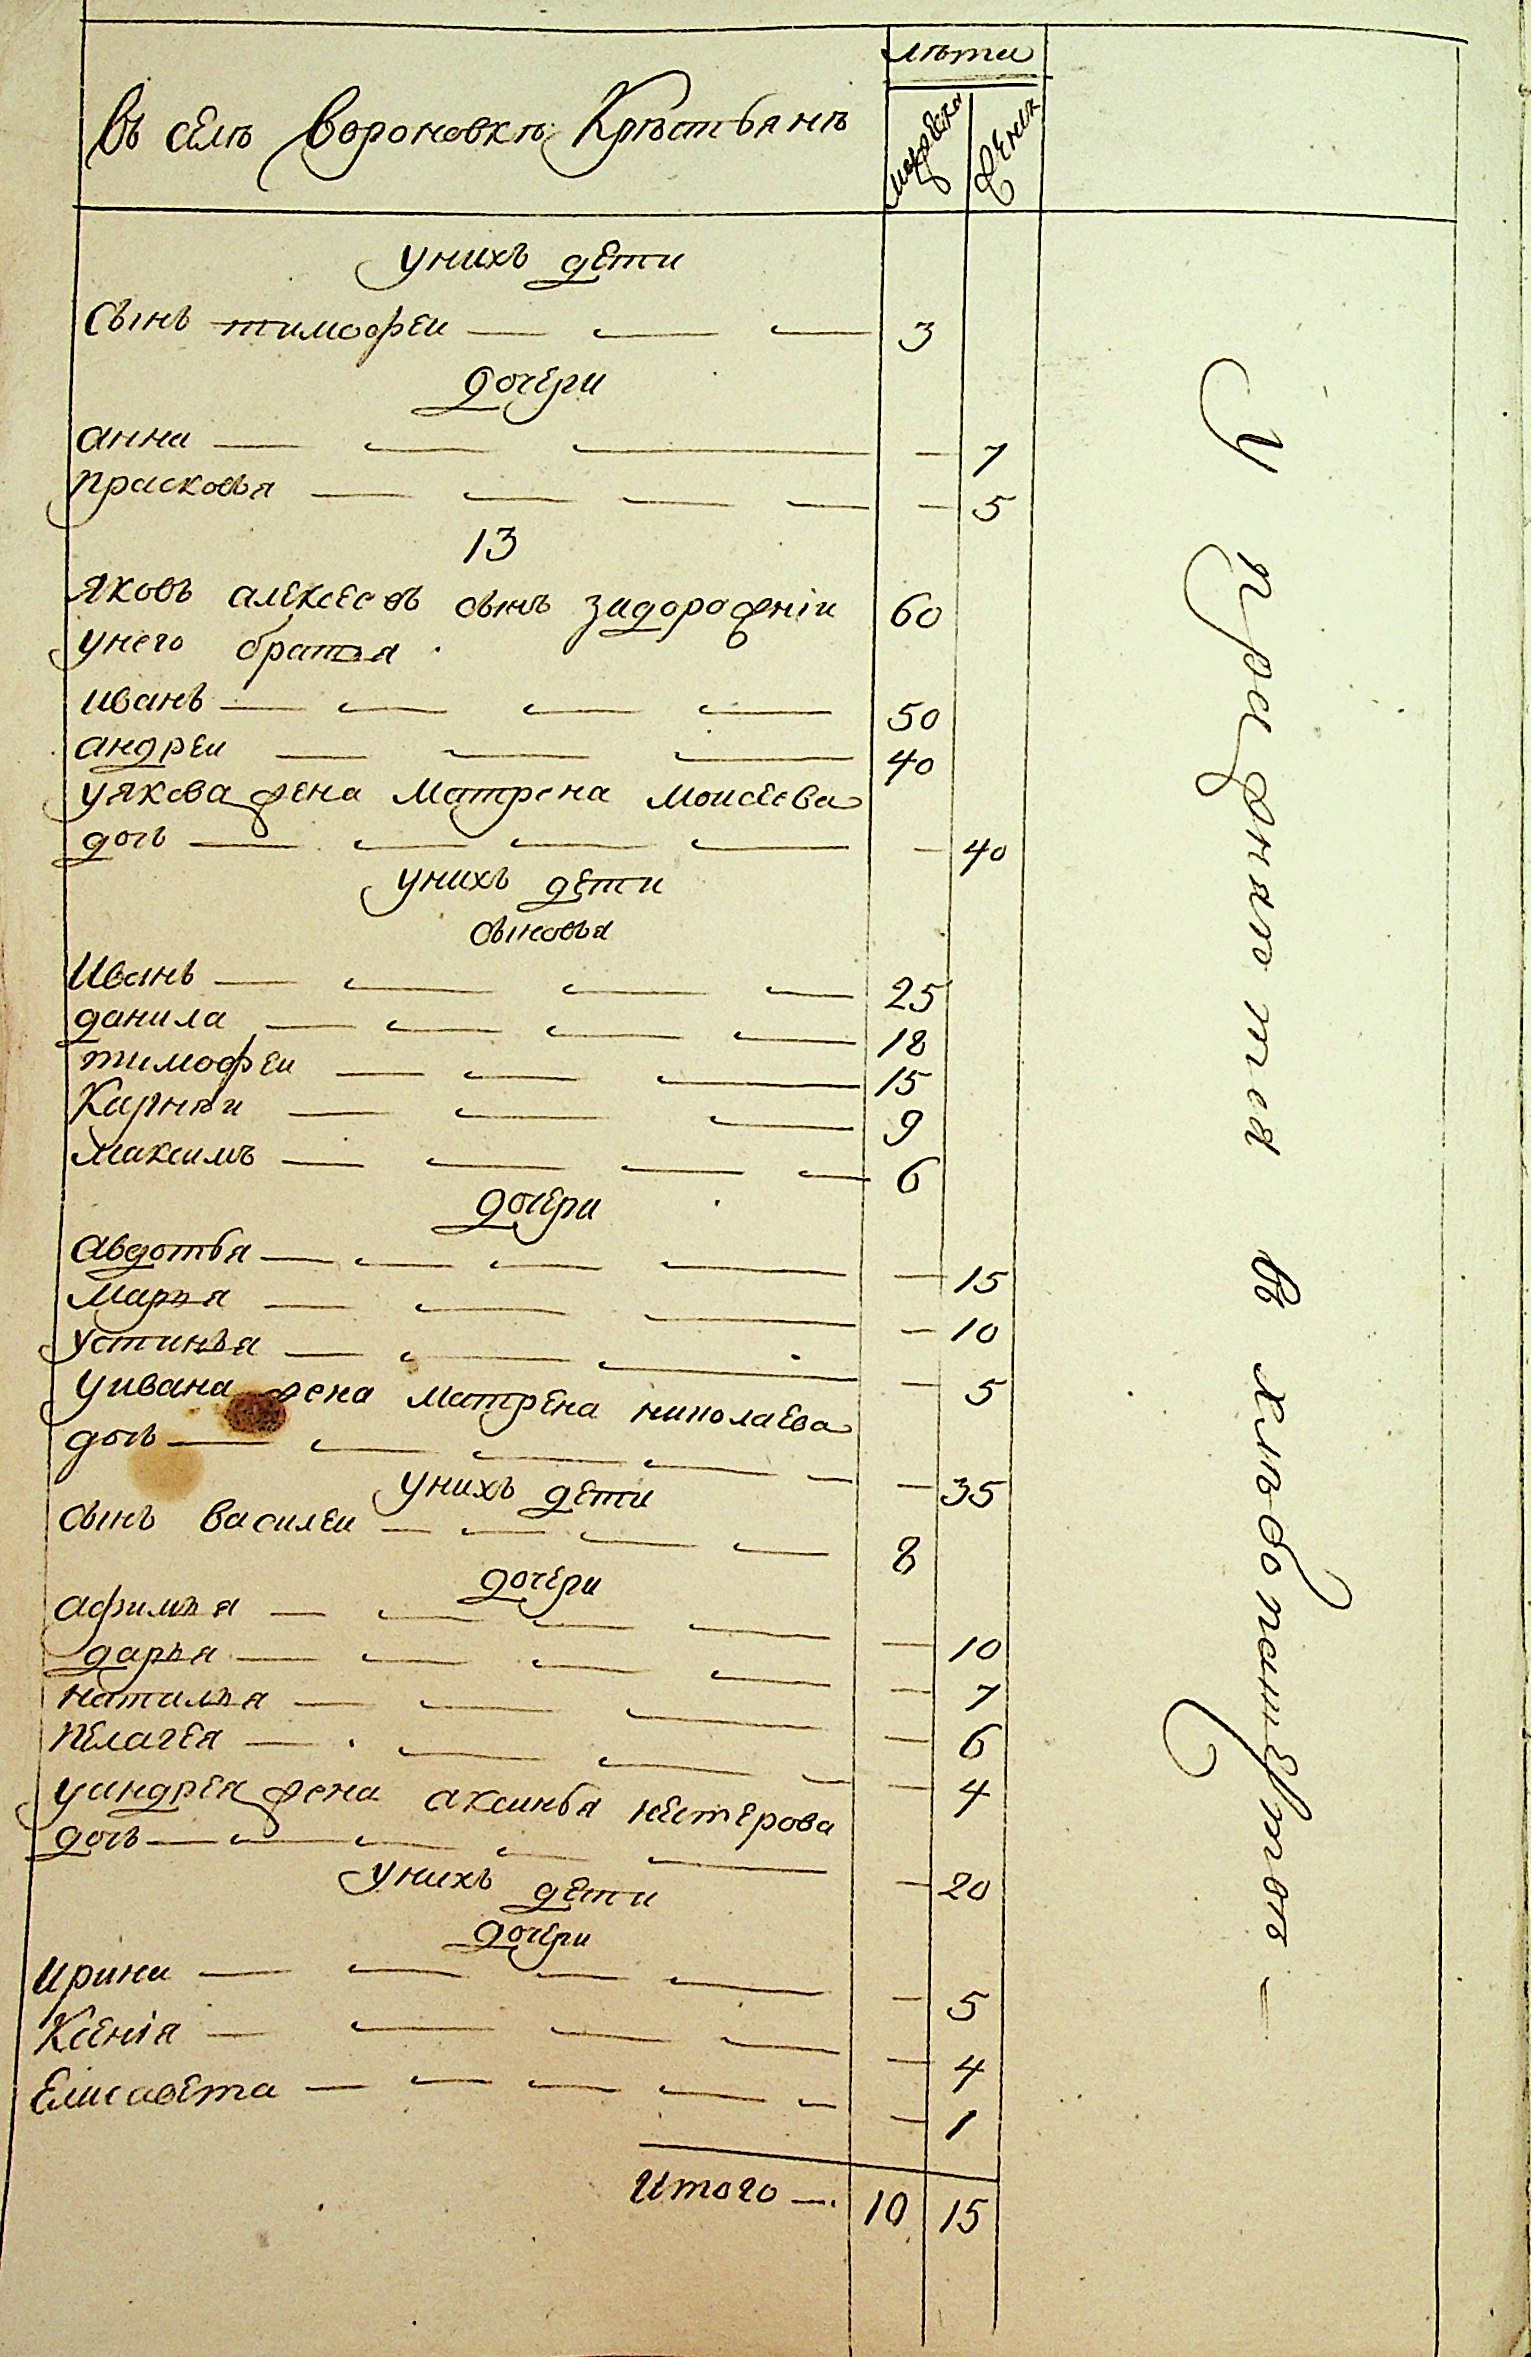 лѣти
въ селѣ вороновкѣ Крѣстьянъ
мужеска
женск
унихъ дети
сынъ тимофеи — — — 3
дочери
анна — — — — 7
прасковья — — — — — 5
13
яковъ алексеевъ сынъ задорожніи 60
унего братья
иванъ — — — — 50
андреи — — — 40
уякова жена матрена моисеева
дочь — — — — — 40
унихъ дети
сыновья
Иванъ — — — — 25
данила — — — — 18
тимофеи — — — 15
Карнѣи — — — 9
максимъ — — — — 6
дочери
авдотья — — — — — 15
марья — — — — 10
устинья — — — — 5
уивана жена матрена николаева
дочь — — — — — — 35
унихъ дети
сынъ василеи — — — — 8
дочери
афимья — — — — — 10
дарья — — — — — 7
наталья — — — — 6
пелагея — — — — — 4
уандрея жена аксинья нестерова
дочь — — — — — — 20
унихъ дети
дочери
ирина — — — — — 5
Ксенія — — — — — 4
Елисавета — — — — — — 1
Итого — 10 15
Упражняются въ хлѣбопашествѣ —